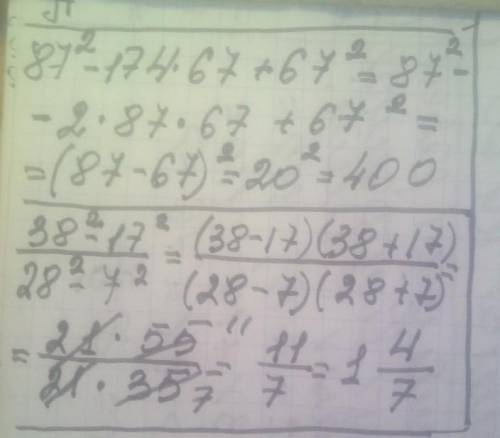 87² - 174·67 + 67² = 87² -
- 2·87·67 + 67² =
= (87 - 67)² = 20² = 400
38² - 17² / 28² - 7² = (38 - 17)(38 + 17) / (28 - 7)(28 + 7) =
= 21·55 11 / 21·35 7 = 11/7 = 1 4/7